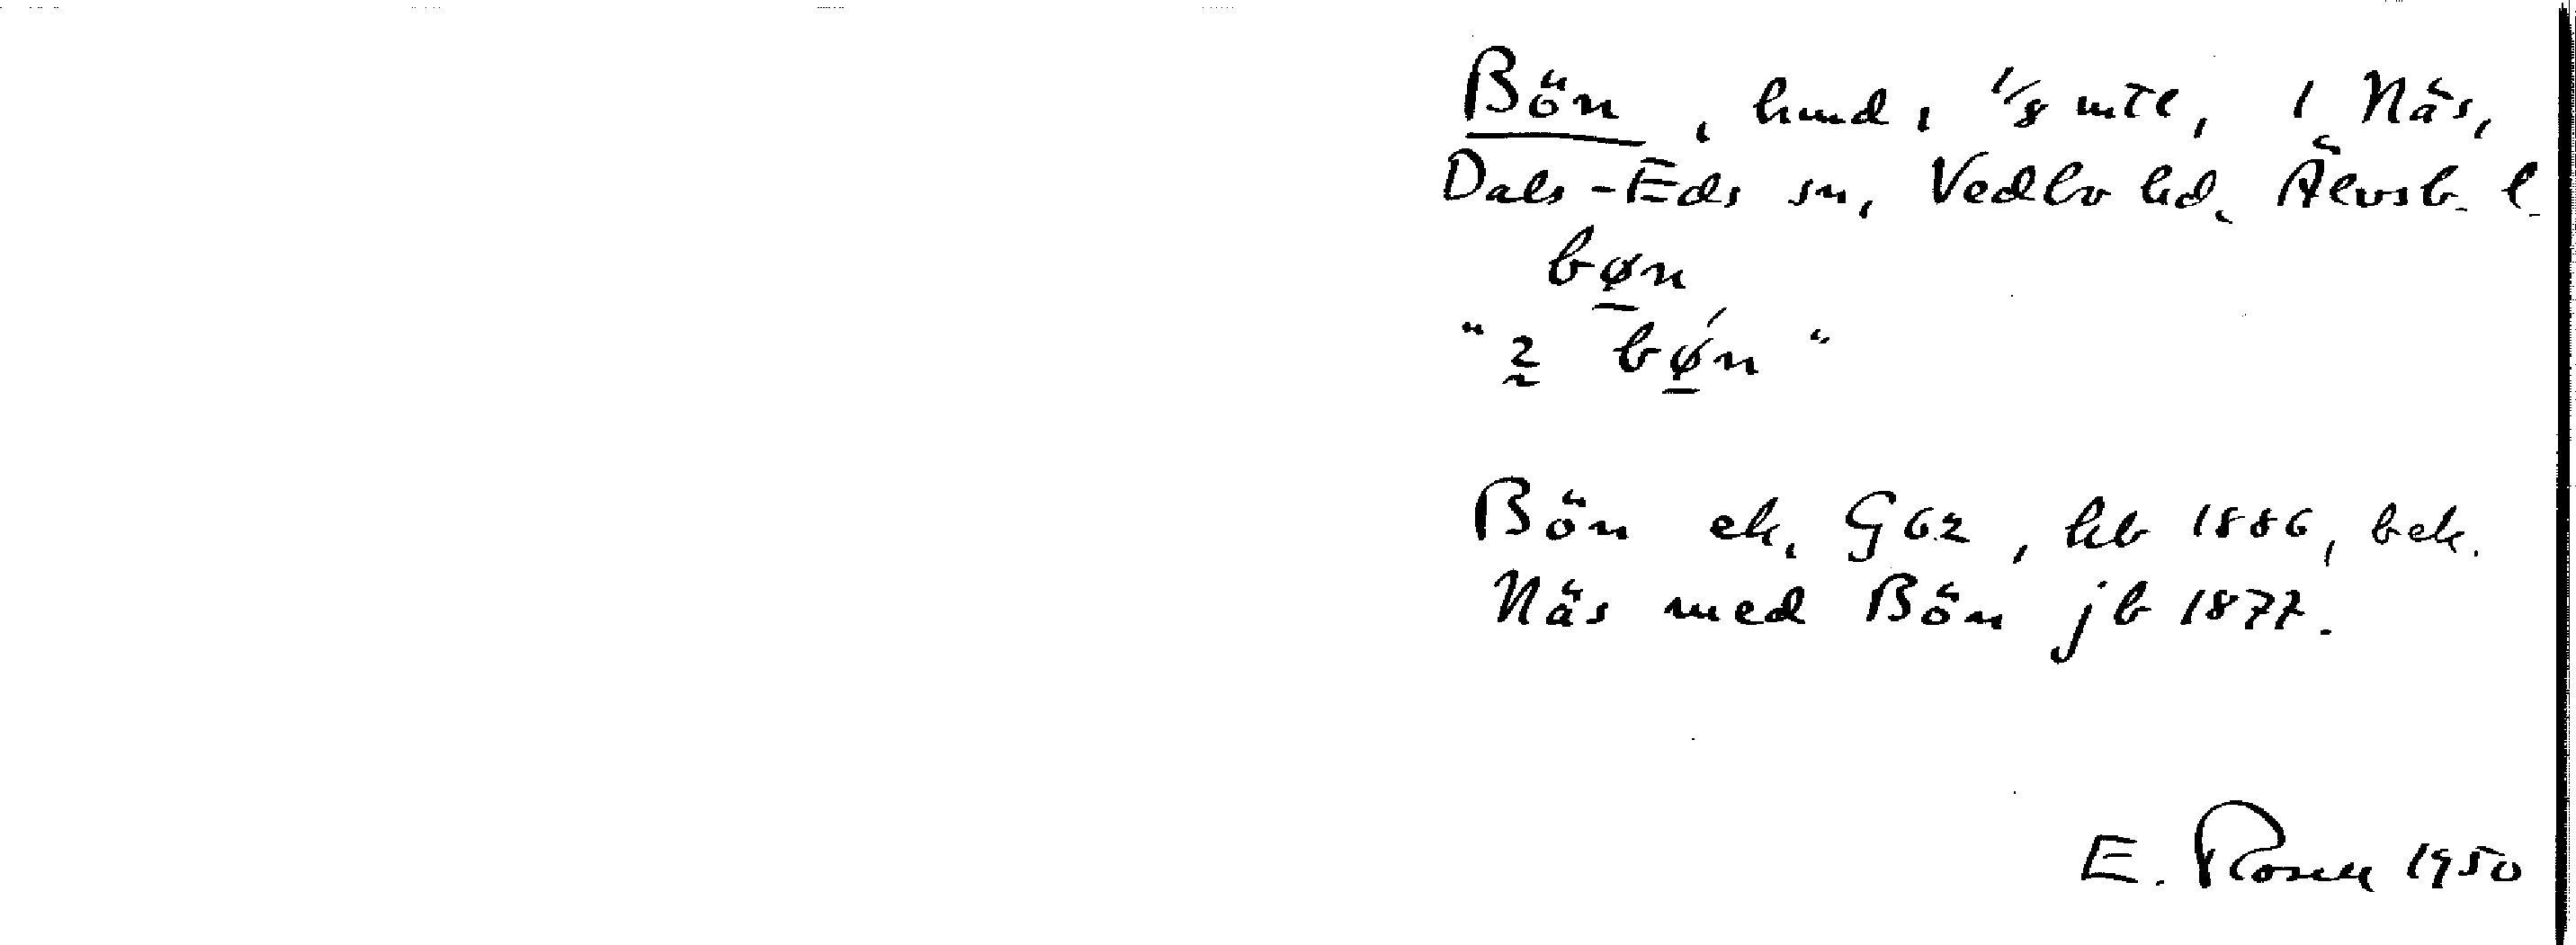 Bön, hmd, 1/8 mtl, i Näs,
Dals-Eds sn, Vedbo hd. Älvsb. l.
bøn
"2 bǿn"
Bön ek. G62, hb 1886, bek.
Näs med Bön jb 1877.
E. Rosell 1950